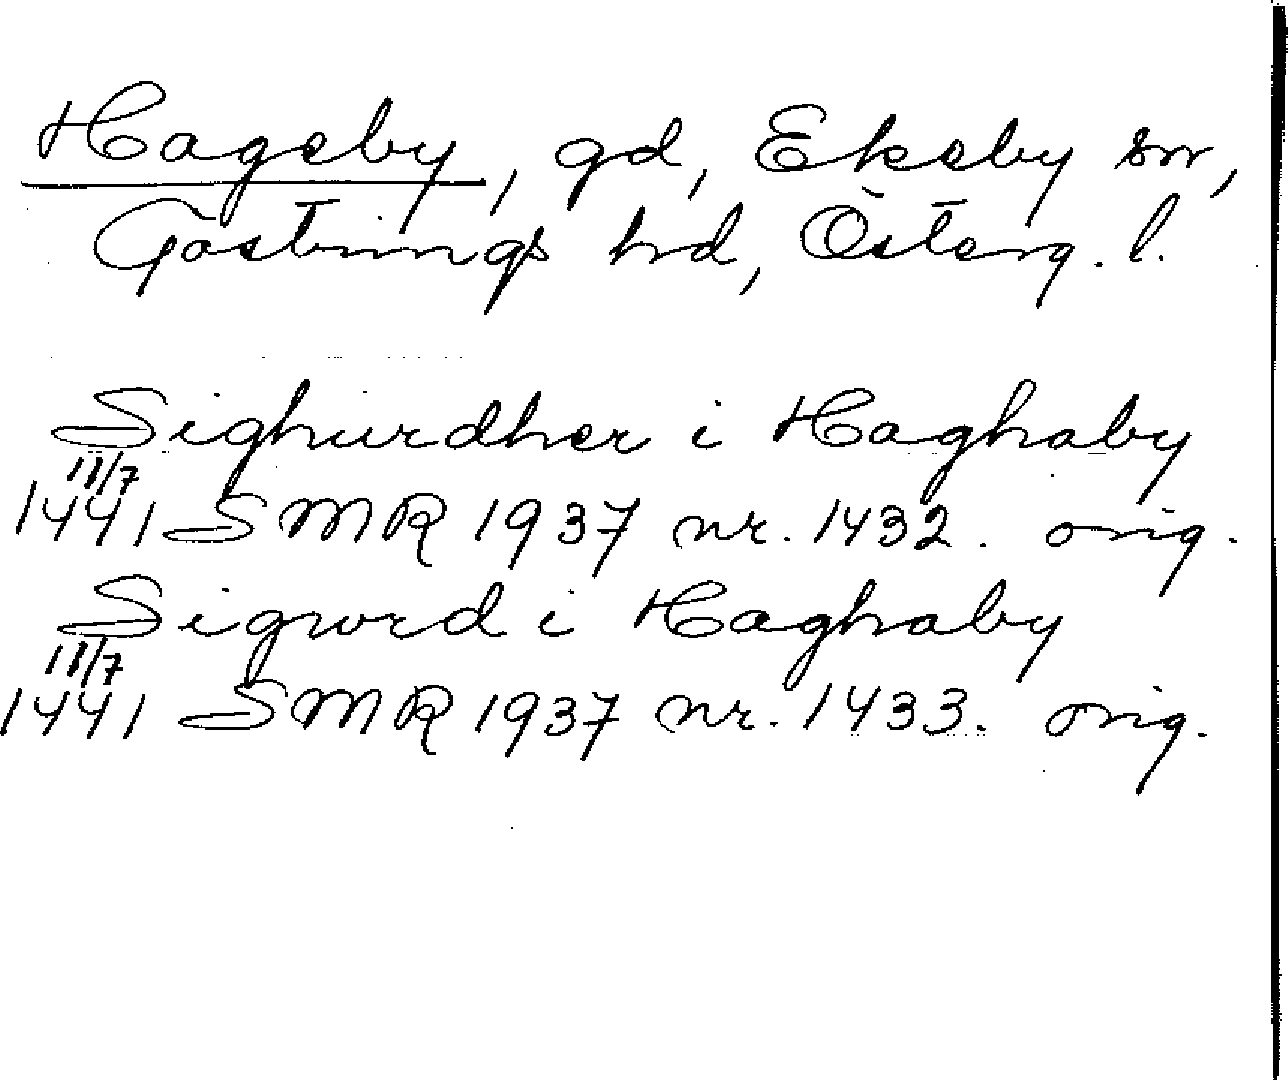 Hageby, gd, Ekeby sn,
Göstrings hd, Österg. l.
Sighurdher i Haghaby
11/7
1441 SMR 1937 nr. 1432. orig.
Sigword i Haghaby
11/7
1441 SMR 1937 nr. 1433. orig.